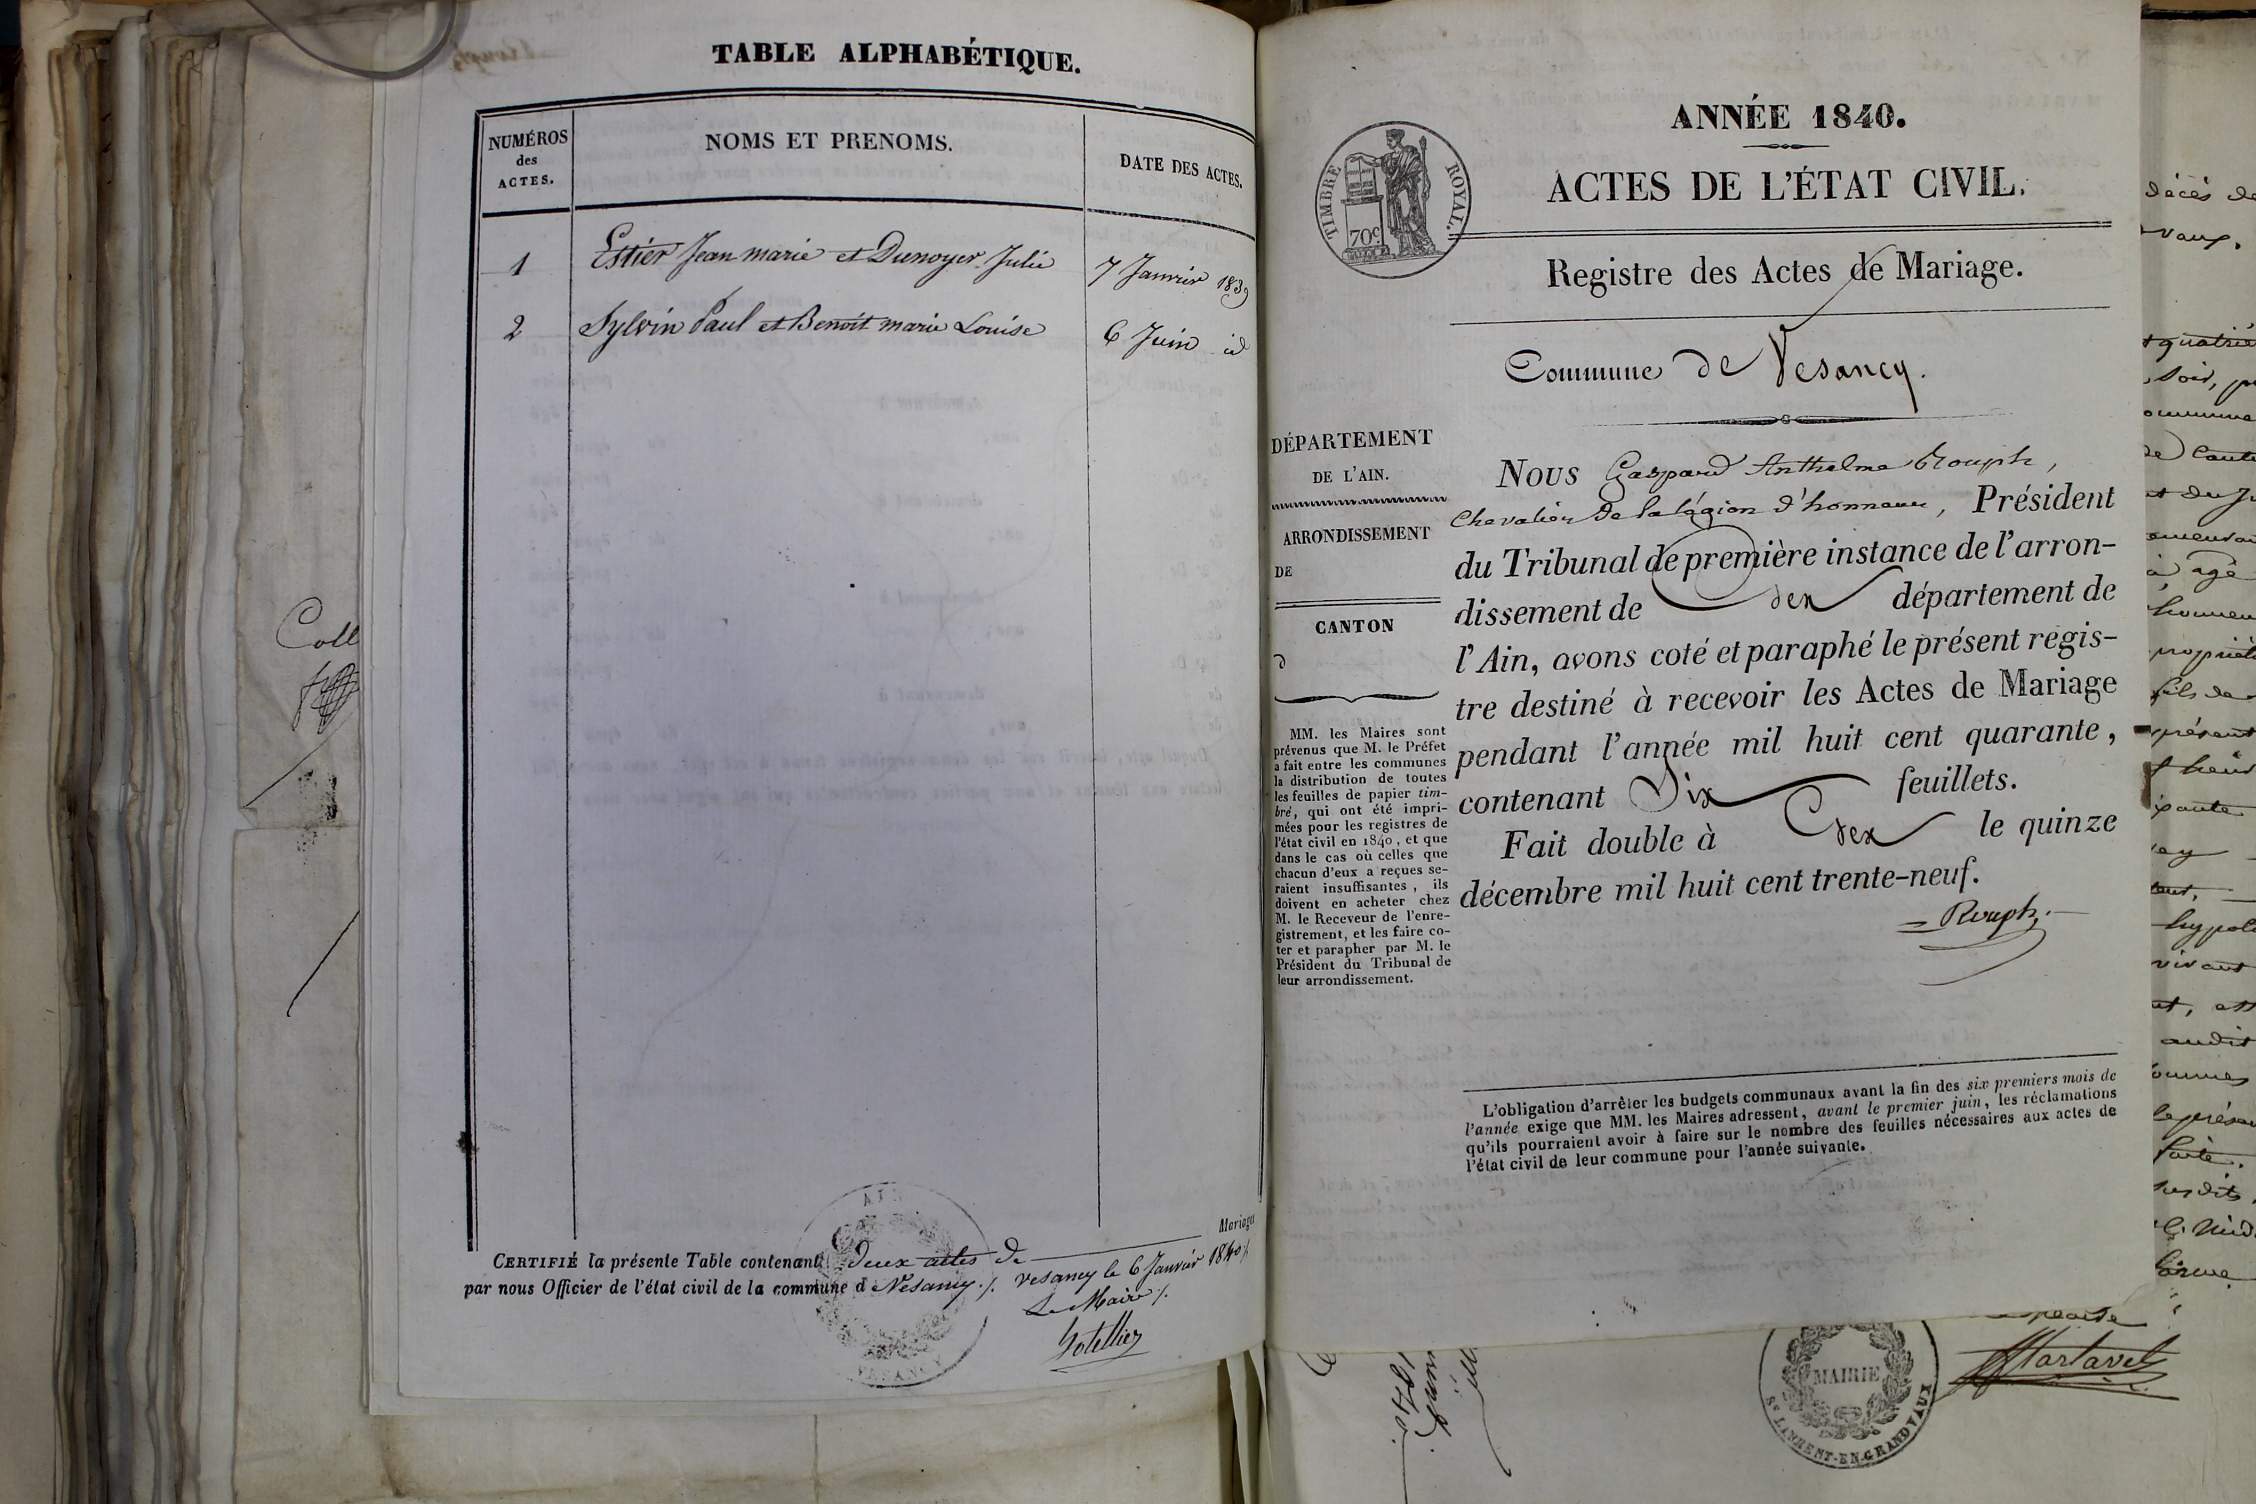 TABLE ALPHABÉTIQUE.
NUMÉROS
des
ACTES.
NOMS ET PRENOMS.
DATE DES ACTES.
1 Estier Jean marie et Dunoyer Julie 7 Janvier 1839
2 Sylvin Paul et Benoit marie Louise 6 Juin id
CERTIFIÉ la présente Table contenant deux actes de Mariages
par nous Officier de l'état civil de la commune d Vesancy ./. Vesancy le 6 Janvier 1840 /.
Le Maire /.
AIN
VESANCY
Coll
ANNÉE 1840.
ACTES DE L'ÉTAT CIVIL.
TIMBRE ROYAL.
70c
Registre des Actes de Mariage.
Commune de Vesancy.
DÉPARTEMENT
DE L'AIN.
ARRONDISSEMENT
DE
CANTON
d
MM. les Maires sont
prévenus que M. le Préfet
a fait entre les communes
la distribution de toutes
les feuilles de papier tim-
bré, qui ont été impri-
mées pour les registres de
l'état civil en 1840, et que
dans le cas où celles que
chacun d'eux a reçues se-
raient insuffisantes, ils
doivent en acheter chez
M. le Receveur de l'enre-
gistrement, et les faire co-
ter et parapher par M. le
Président du Tribunal de
leur arrondissement.
Nous Gaspard Anthelme Rouph,
Chevalier de la légion d'honneur, Président
du Tribunal de première instance de l'arron-
dissement de Gex département de
l'Ain, avons coté et paraphé le présent regis-
tre destiné à recevoir les Actes de Mariage
pendant l'année mil huit cent quarante,
contenant Six feuillets.
Fait double à Gex le quinze
décembre mil huit cent trente-neuf.
Rouph.
L'obligation d'arrêter les budgets communaux avant la fin des six premiers mois de
l'année exige que MM. les Maires adressent, avant le premier juin, les réclamations
qu'ils pourraient avoir à faire sur le nombre des feuilles nécessaires aux actes de
l'état civil de leur commune pour l'année suivante.
décès de
vaux.
quatriè
soir, p
commune
de
et du Ju
à agé
propriét
fils de
présent
vivant
audit
le prése
MAIRIE
ST LAURENT-EN-GRANDVAUX
Martavel